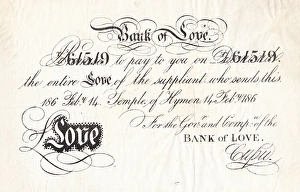 Bank of Love.
No 61519 to pay to you on D 61519
the entire Love of the suppliant who sends this
186 Feby 14. Temple of Hymen 14 Feby 186
For the Govr and Compy of the
BANK OF LOVE.
Love
Cupid.